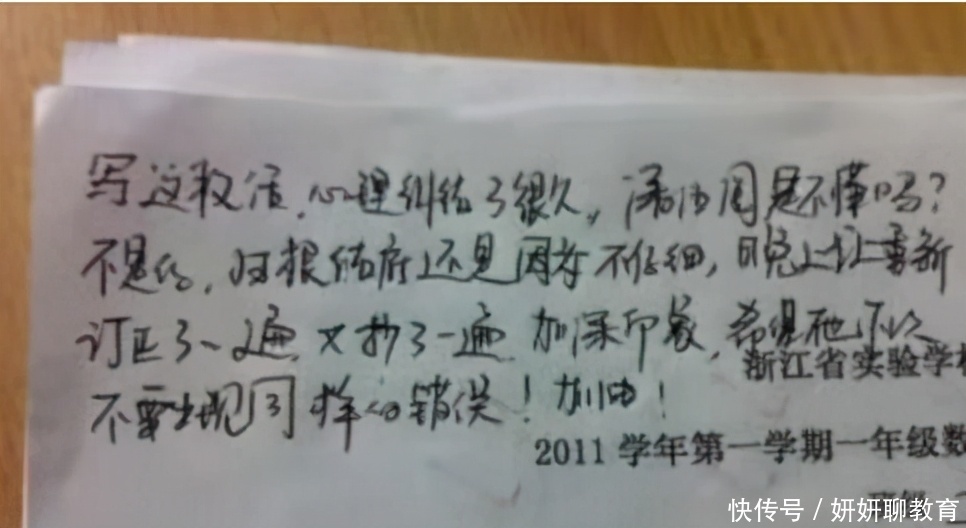 写这段话，心理纠结了很久，潘沛周是不懂吗？
不是的，归根结底还是因为不仔细，晚上让重新
订正了一遍，又抄了一遍，加深印象，希望他下次
浙江省实验学校
不要出现同样的错误！加油！
2011 学年第一学期一年级数
快传号 / 妍妍聊教育